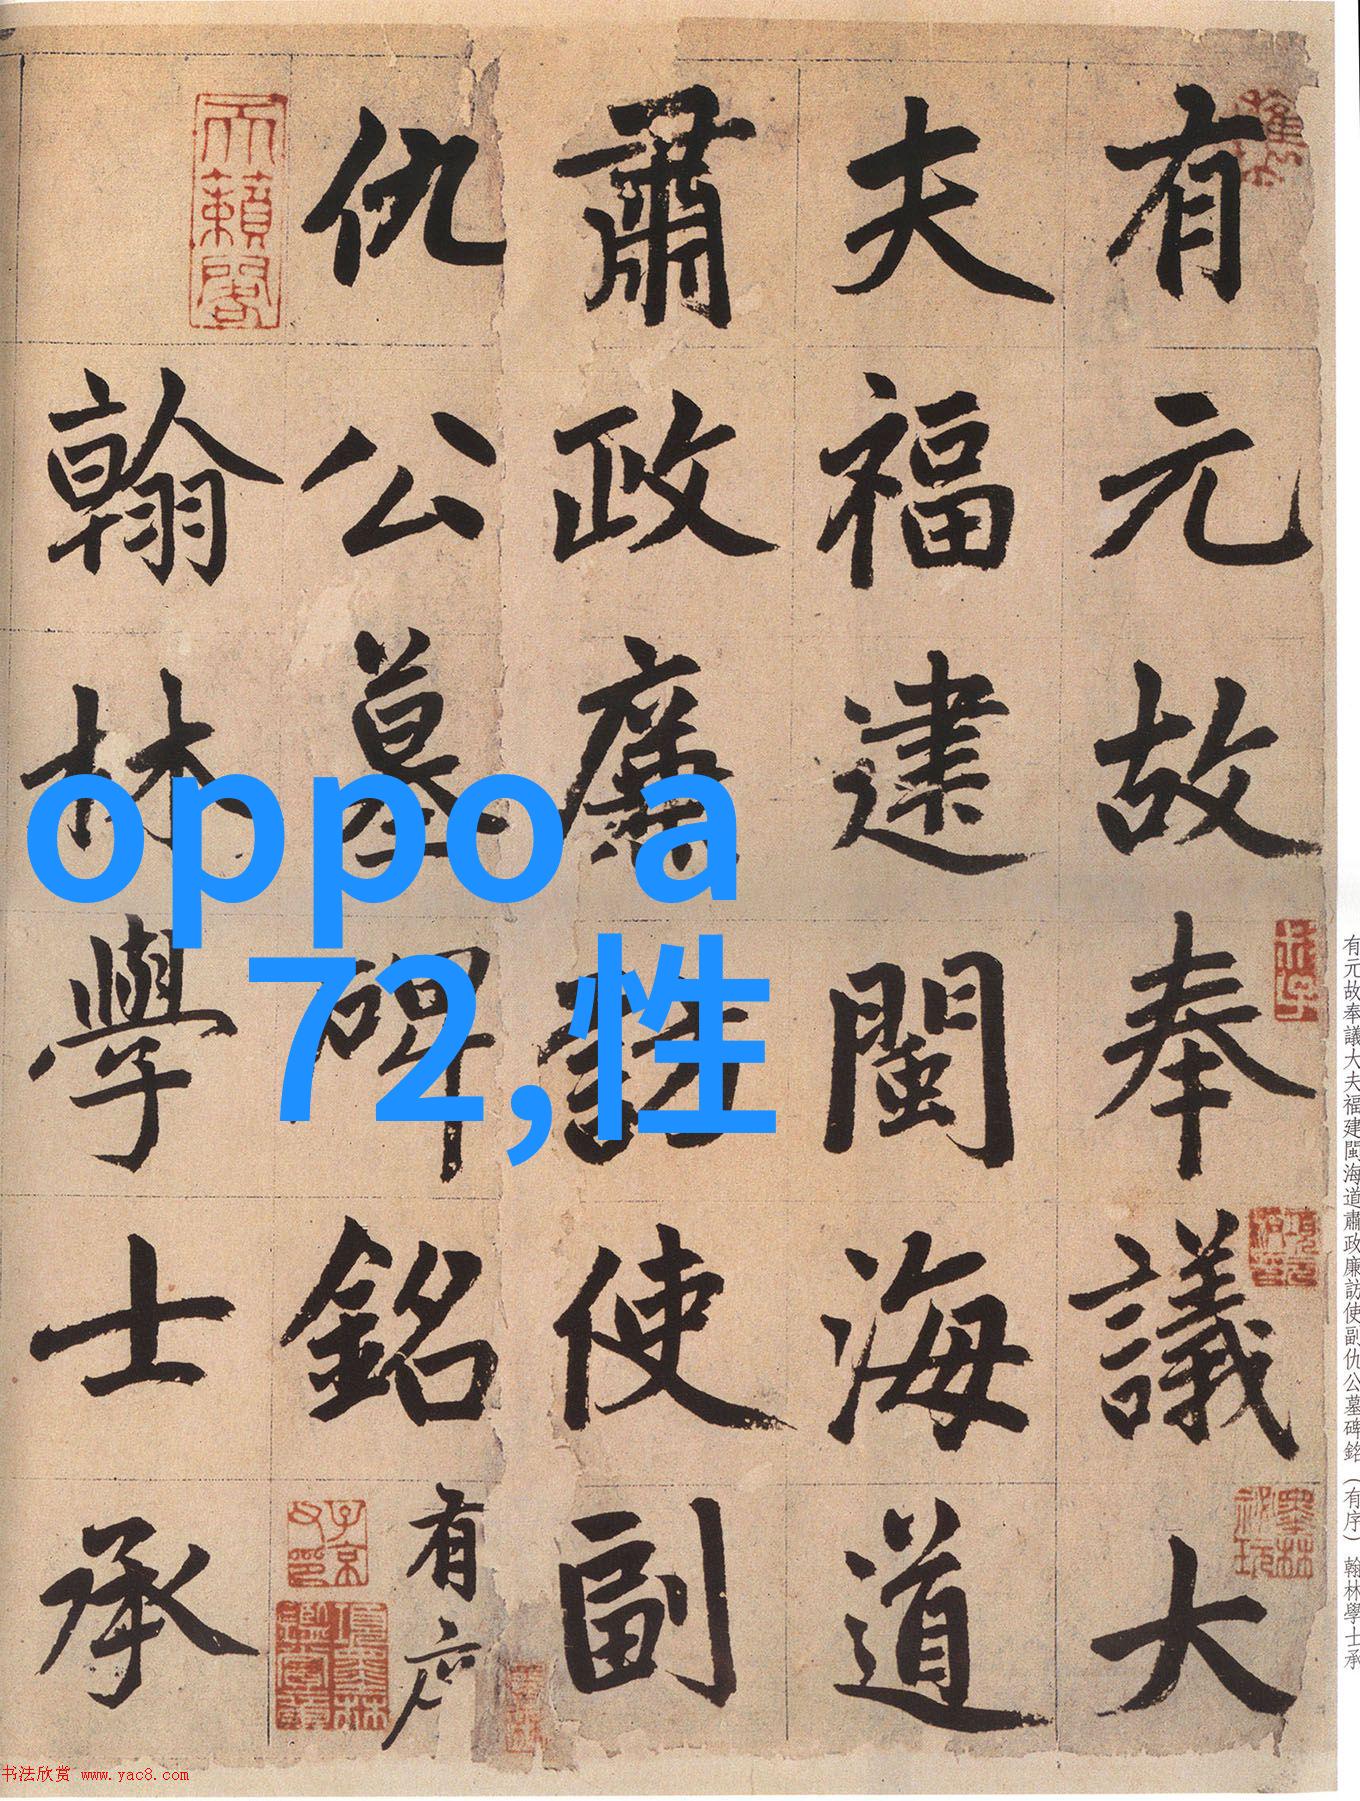 有元故奉議大夫福建閩海道肅政廉訪使副仇公墓碑銘（有序）翰林學士承
有元故奉議大
夫福建閩海道
肅政廉訪使副
仇公墓碑銘有序
天籟閣
子京父印
項墨林鑑賞章
墨林祕玩
翰林學士承
oppo a
72,性
书法欣赏 www.yac8.com